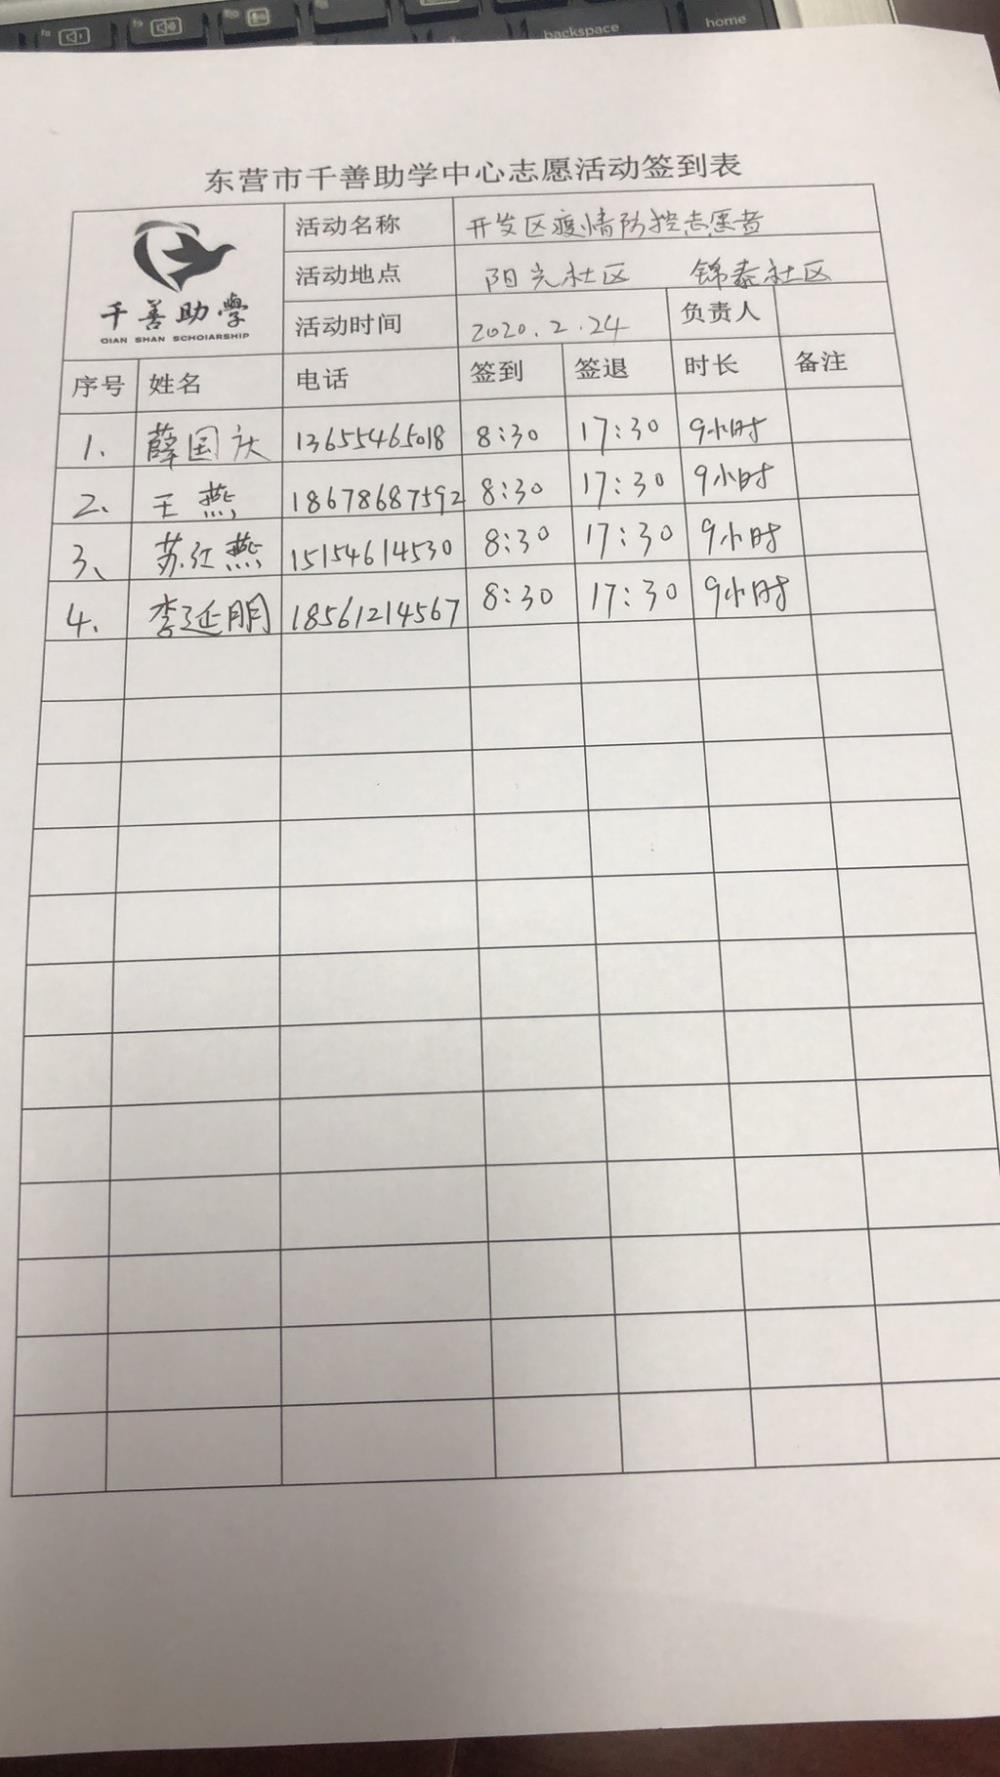 backspace
home
东营市千善助学中心志愿活动签到表
千善助學
QIAN SHAN SCHOIARSHIP
活动名称 开发区疫情防控志愿者
活动地点 阳光社区 锦泰社区
活动时间 2020.2.24 负责人
序号 姓名 电话 签到 签退 时长 备注
1. 薛国庆 13655465018 8:30 17:30 9小时
2、 王燕 18678687592 8:30 17:30 9小时
3、 苏红燕 15154614530 8:30 17:30 9小时
4. 李延朋 18561214567 8:30 17:30 9小时